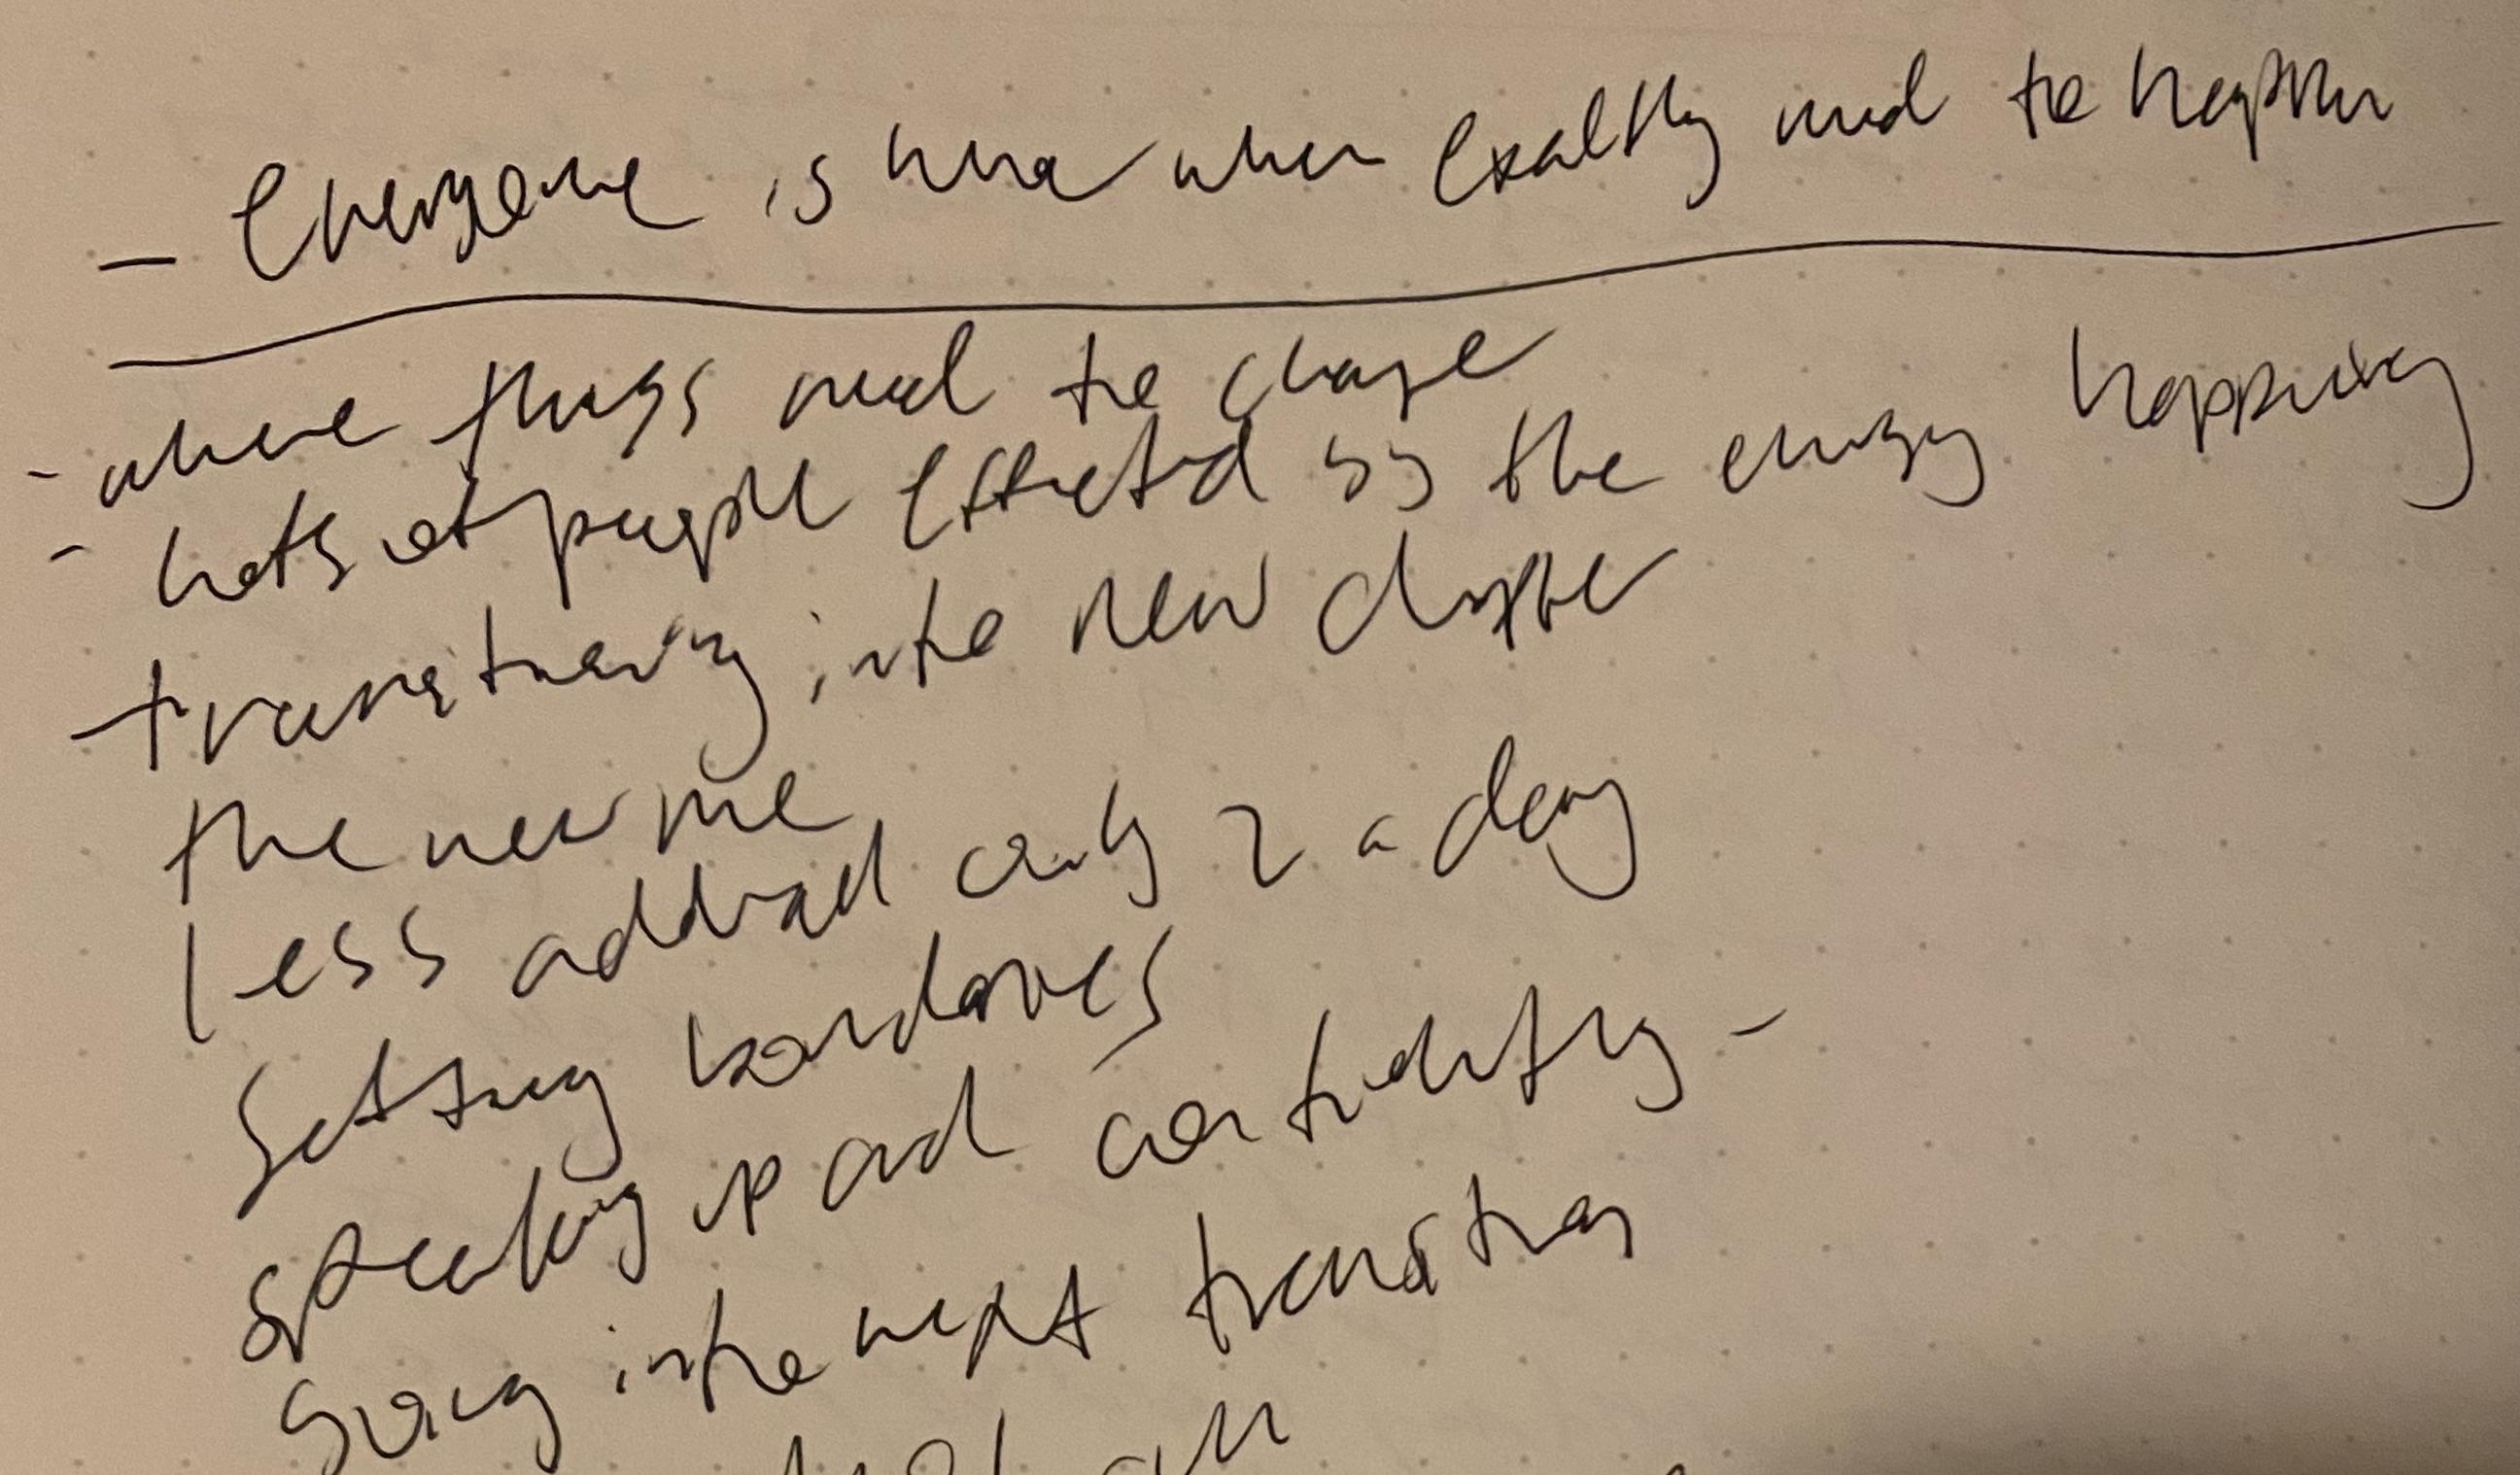 - Everyone is here when exactly need to happen
- where things need to change
- Lots of people effected by the energy happening
- transitioning into new chapter
the new me
less adderall only 2 a day
Setting boundaries
speaking up and confidently -
Going into next transition